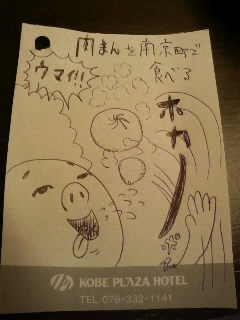 肉まんを南京町で
食べる
ウマイ!!!
ホカー
KOBE PLAZA HOTEL
TEL 078・332・1141